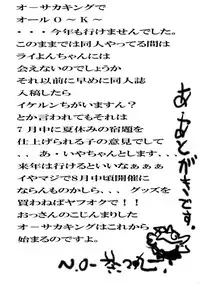 オーサカキングで
オールO~K~
・・・今年も行けませんでした。
このままでは同人やってる間は
ライよんちゃんには
会えないのでしょうか
それ以前に早めに同人誌
入稿したら
イケルンちがいますん?
とか言われてもそれは
7月中に夏休みの宿題を
仕上げられる子の意見でして
、、あ・いやちゃんとします、、、
来年は行けるといいなぁぁぁ
イヤマジで8月中頃開催に
ならんものかしら、、、グッズを
買わねばヤフオクで!!
おっさんのこじんまりした
オーサカキングはこれから
始まるのですよ。
あとがきです。